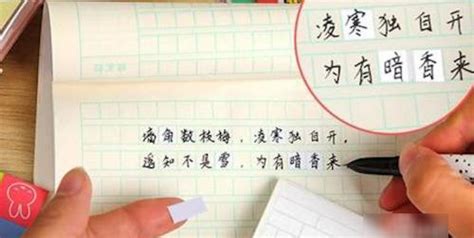 凌寒独自开
为有暗香来
墙角数枝梅，凌寒独自开。
遥知不是雪，为有暗香来